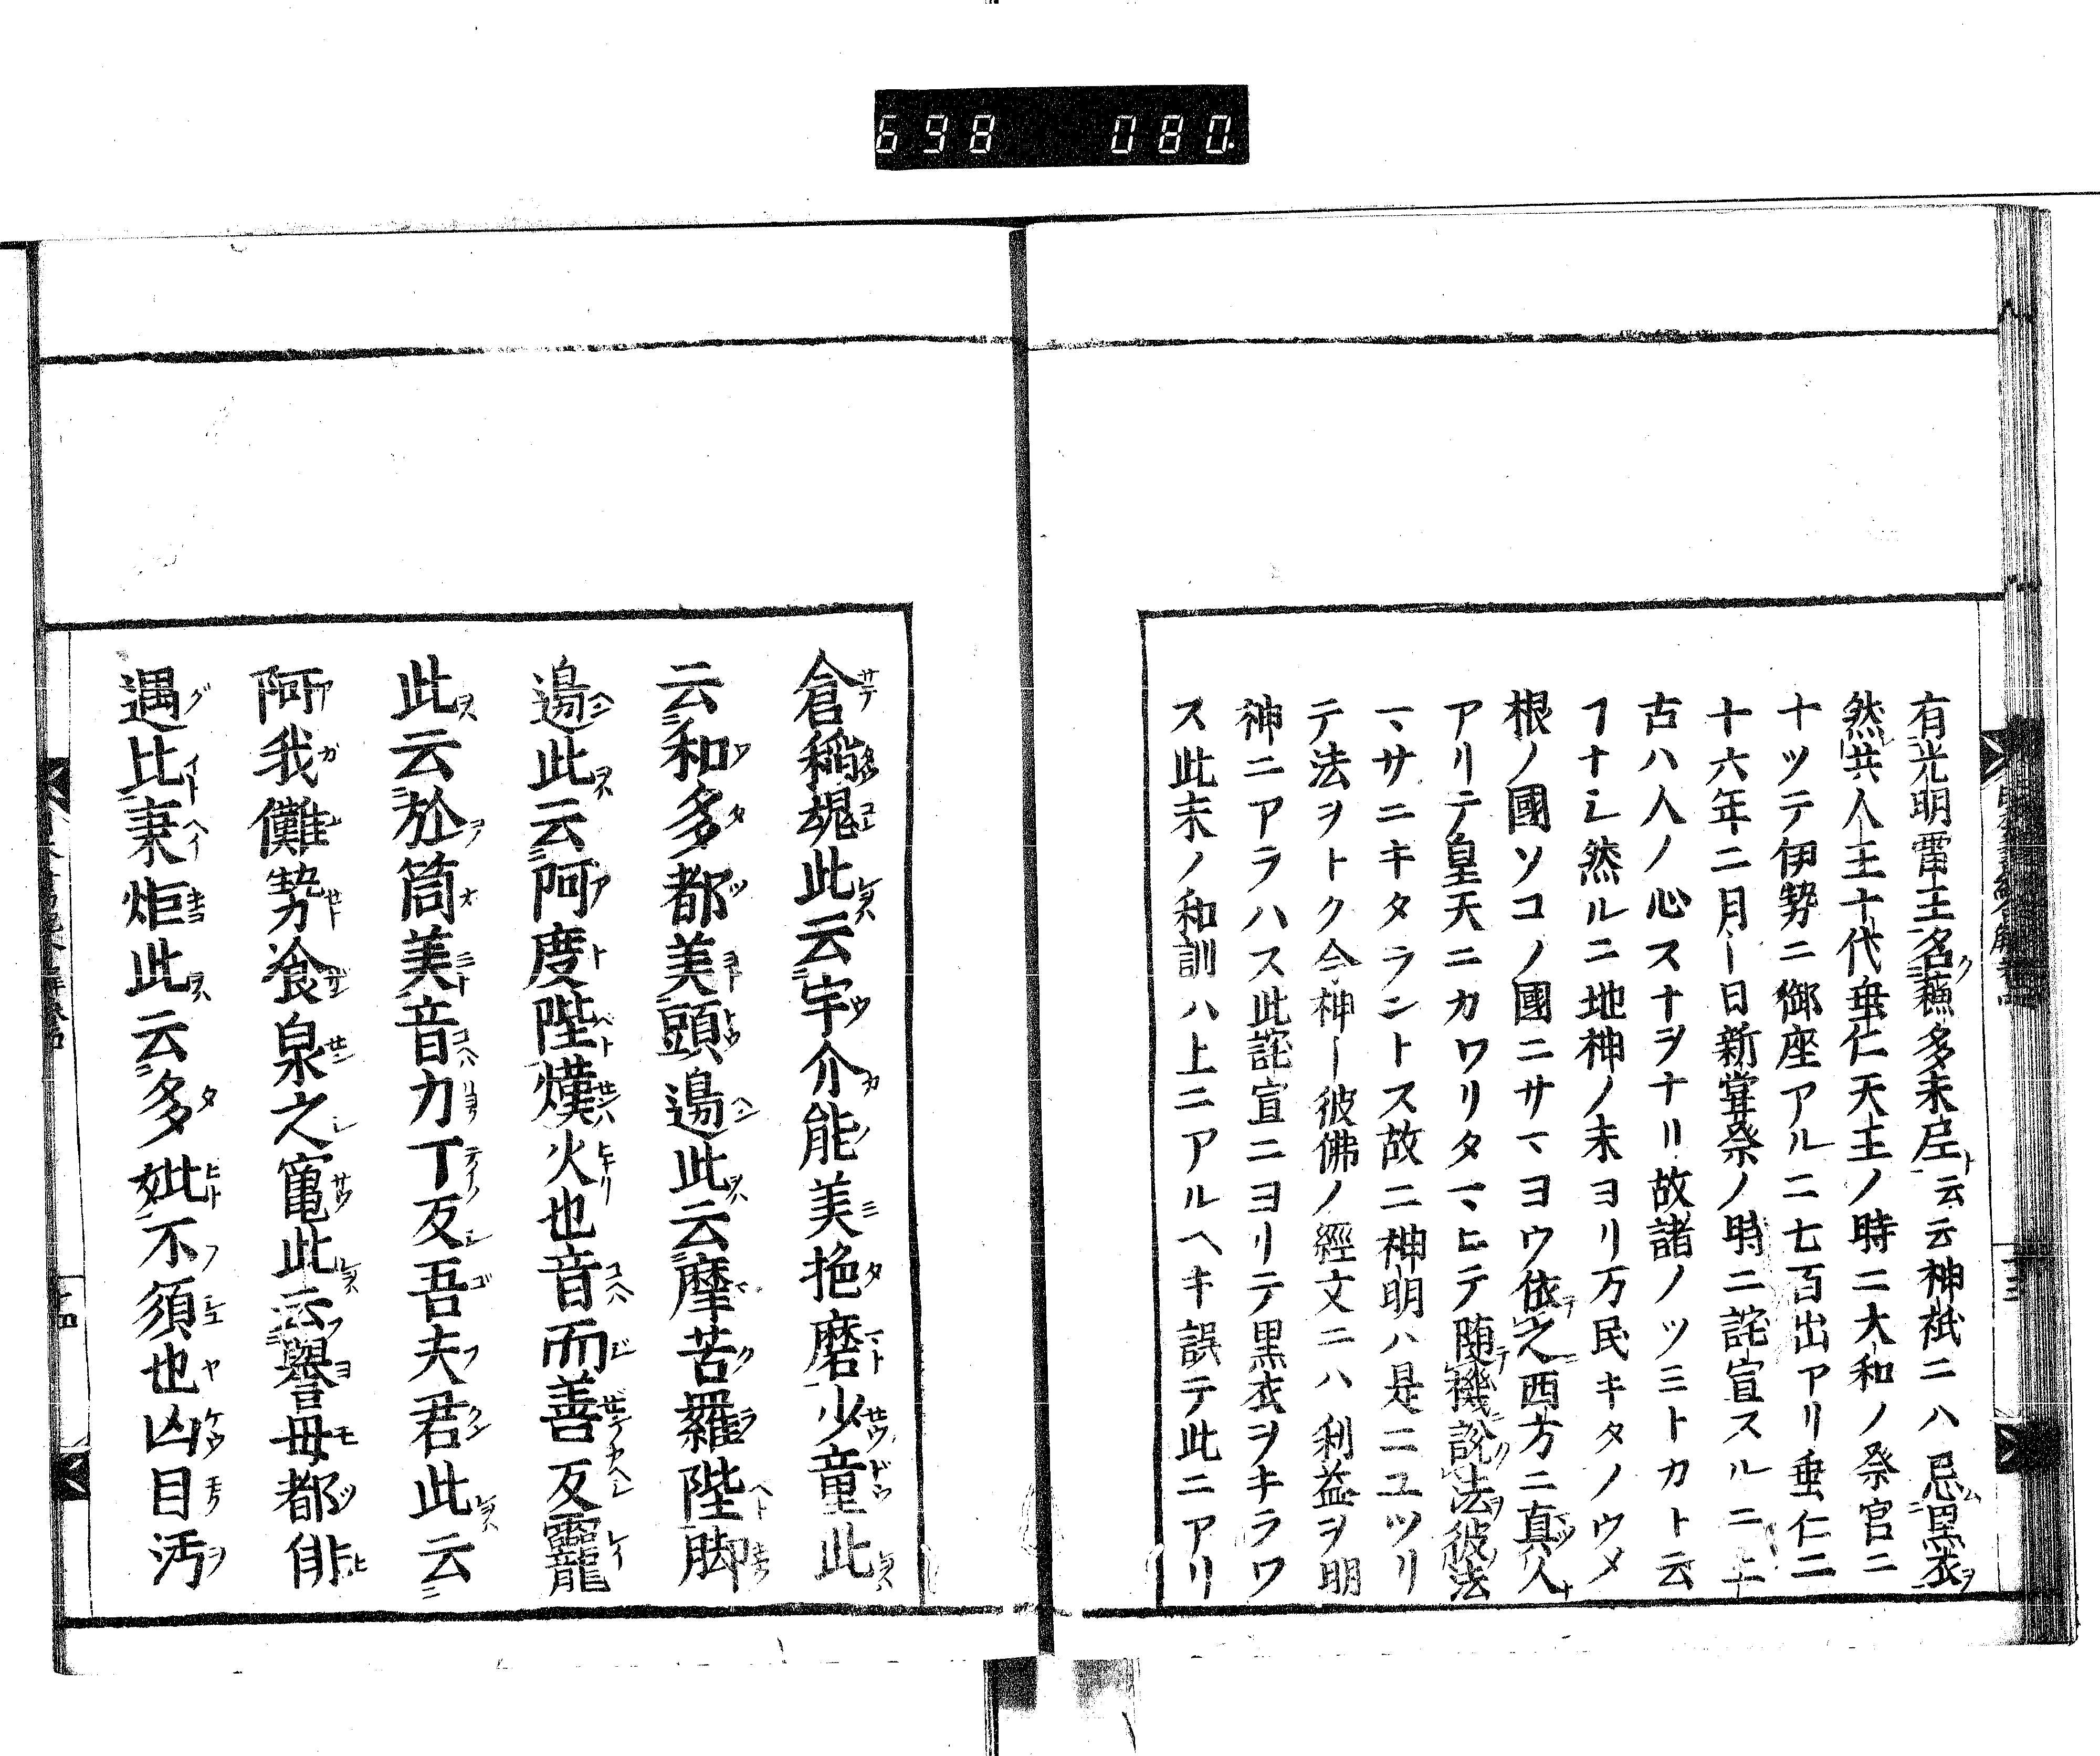 698 080
有光明雷王名蘓多末尼云云神祇ニハ忌黒衣
然共人王十代垂仁天主ノ時ニ大和ノ祭官ニ
十ツテ伊勢ニ御座アルニ七百出アリ垂仁二
十六年二月一日新甞祭ノ時ニ詫宣スルニ上
古ハ人ノ心スナヲナリ故諸ノツミトカト云
ヿナし然ルニ地神ノ末ヨリ万民キタノウメ
根ノ國ソコノ國ニサマヨウ依之西方ニ真人
アリテ皇天ニカワリタマヒテ随機説法彼法
マサニキタラントス故ニ神明ハ是ニユツリ
テ法ヲトク今神一彼佛ノ經文ニハ利益ヲ明
神ニアラハス此詫宣ニヨリテ黒衣ヲキラワ
ス此末ノ和訓ハ上ニアルヘキ誤テ此ニアリ
倉稲魂此云宇介能美拕磨少童此
云和多都美頭邉此云摩苦羅陛脚
邉此云阿度陛熯火也音而善反靇
此云於箇美音力丁反吾夫君此云
阿我儺勢飡泉之竃此云譽毋都俳
遇比秉炬此云多妣不須也凶目汚